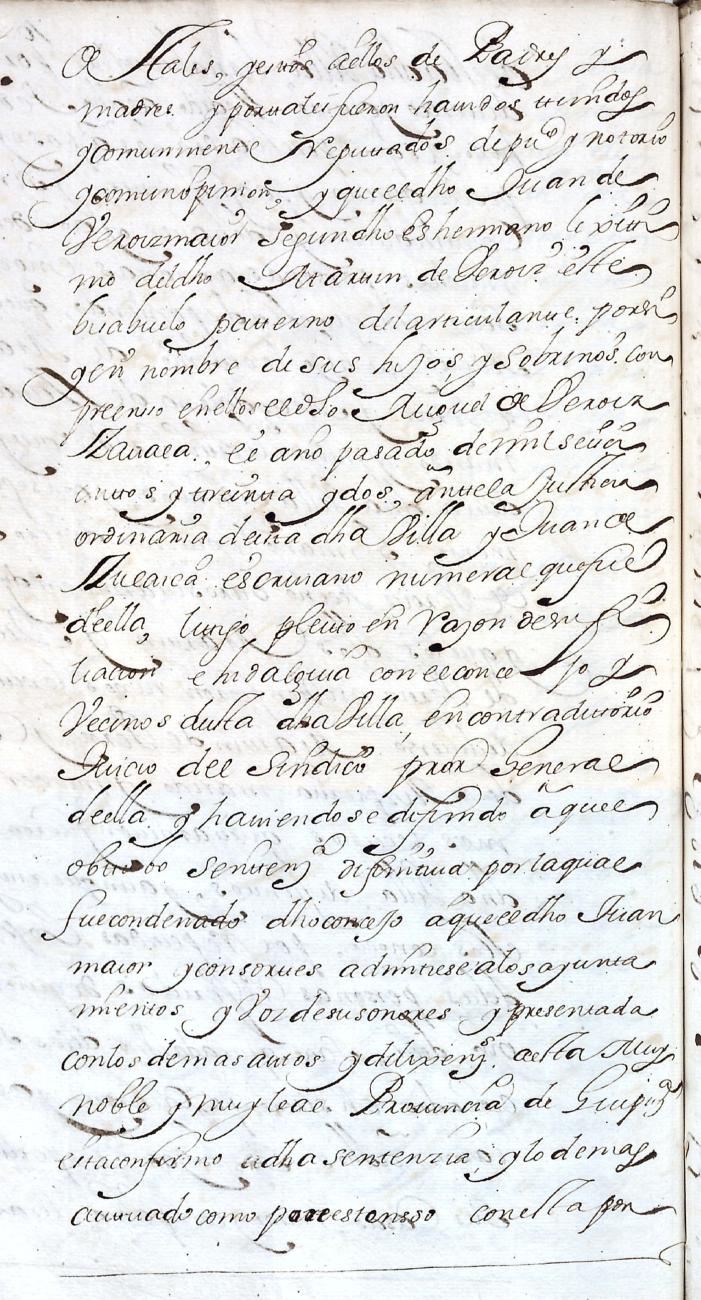 de tales, y estos a ellos de Padres y
madre y por tales fueron hauidos tenidos
y comunmente Reputados de puco y notorio
y comun opinion, y que el dho Juan de
Veroiz maior segun dho es hermano lexiti
mo del dho Martin de Veroiz este
bisabuelo paterno del articulante por si
y en nombre de sus hijos, y sobrinos con
preenso en ellos el dho Miguel de Veroiz
el año pasado de mil seisci
entos y treinta y dos, ante la Justicia
ordinaria desta dha Villa y Juan de
escriuano numeral que fue
de ella, litigo pleito en Razon de su fi
liacion e hidalguia con el concejo y
Vecinos desta dha Villa, en contraditorio
Juicio del sindico pror General
de ella y hauiendose difinido aquel
obtubo sentenza difinitiua por la qual
fue condenado dho concejo a que el dho Juan
maior y consortes admitiese a los ayunta
mientos y Voz de sus onores y presentada
con los demas autos y dilixens a esta Muy
noble y muy leal Prouincia de Guipuza
esta confirmo a dha sentenzia, y lo demas
actuado como por estensso consta por